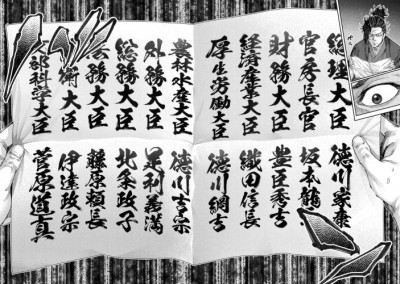 総理大臣
官房長官
財務大臣
経済産業大臣
厚生労働大臣
農林水産大臣
外務大臣
総務大臣
務大臣
大臣
部科学大臣
徳川家康
坂本龍
豊臣秀吉
織田信長
徳川綱吉
徳川吉宗
足利義満
北条政子
藤原頼長
伊達政宗
菅原道真